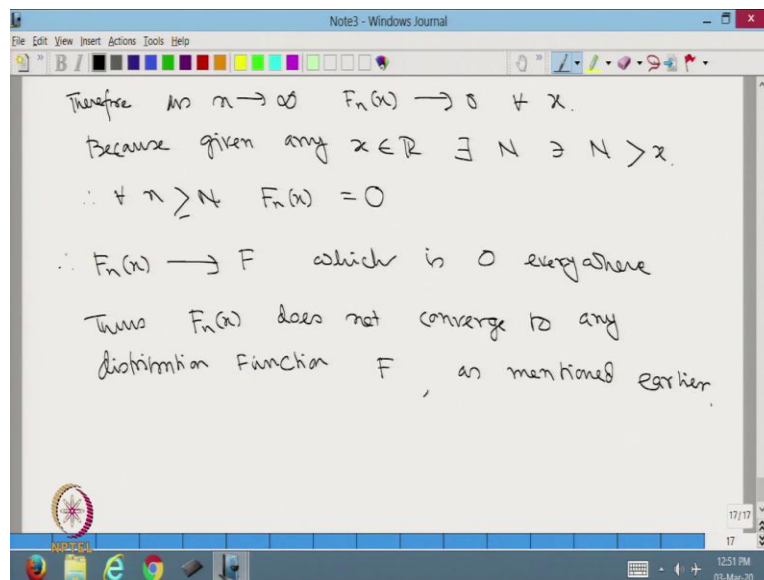 Note3 - Windows Journal
File Edit View Insert Actions Tools Help
Therefore as n → ∞ Fn(x) → 0 ∀ x.
Because given any x ∈ ℝ ∃ N ∋ N > x.
∴ ∀ n ≥ N Fn(x) = 0
∴ Fn(x) → F which is 0 everywhere
Thus Fn(x) does not converge to any
distribution Function F, as mentioned earlier.
NPTEL
17/17
17
12:51 PM
03-Mar-20